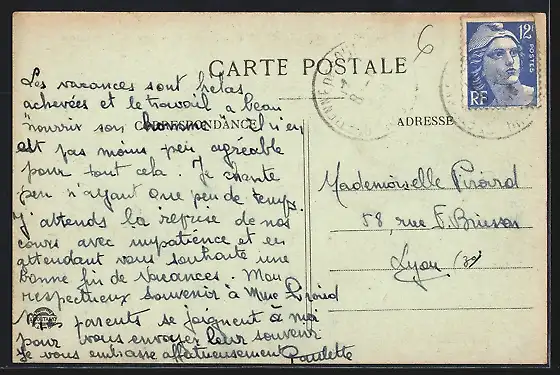 CARTE POSTALE
CORRESPONDANCE
ADRESSE
12F
POSTES
RF
6
Les vacances sont hélas
achevées et le travail a beau
"nourrir son homme" il n'en
est pas moins peu agréable
pour tout cela. Je chante
peu n'ayant que peu de temps.
J'attends la reprise de nos
cours avec impatience et en
attendant vous souhaite une
bonne fin de vacances. Mon
respectueux souvenir à Mme Girard
Mes parents se joignent à moi
pour vous envoyer leur souvenir
Je vous embrasse affectueusement Paulette
Mademoiselle Girard
58, rue F.
Lyon